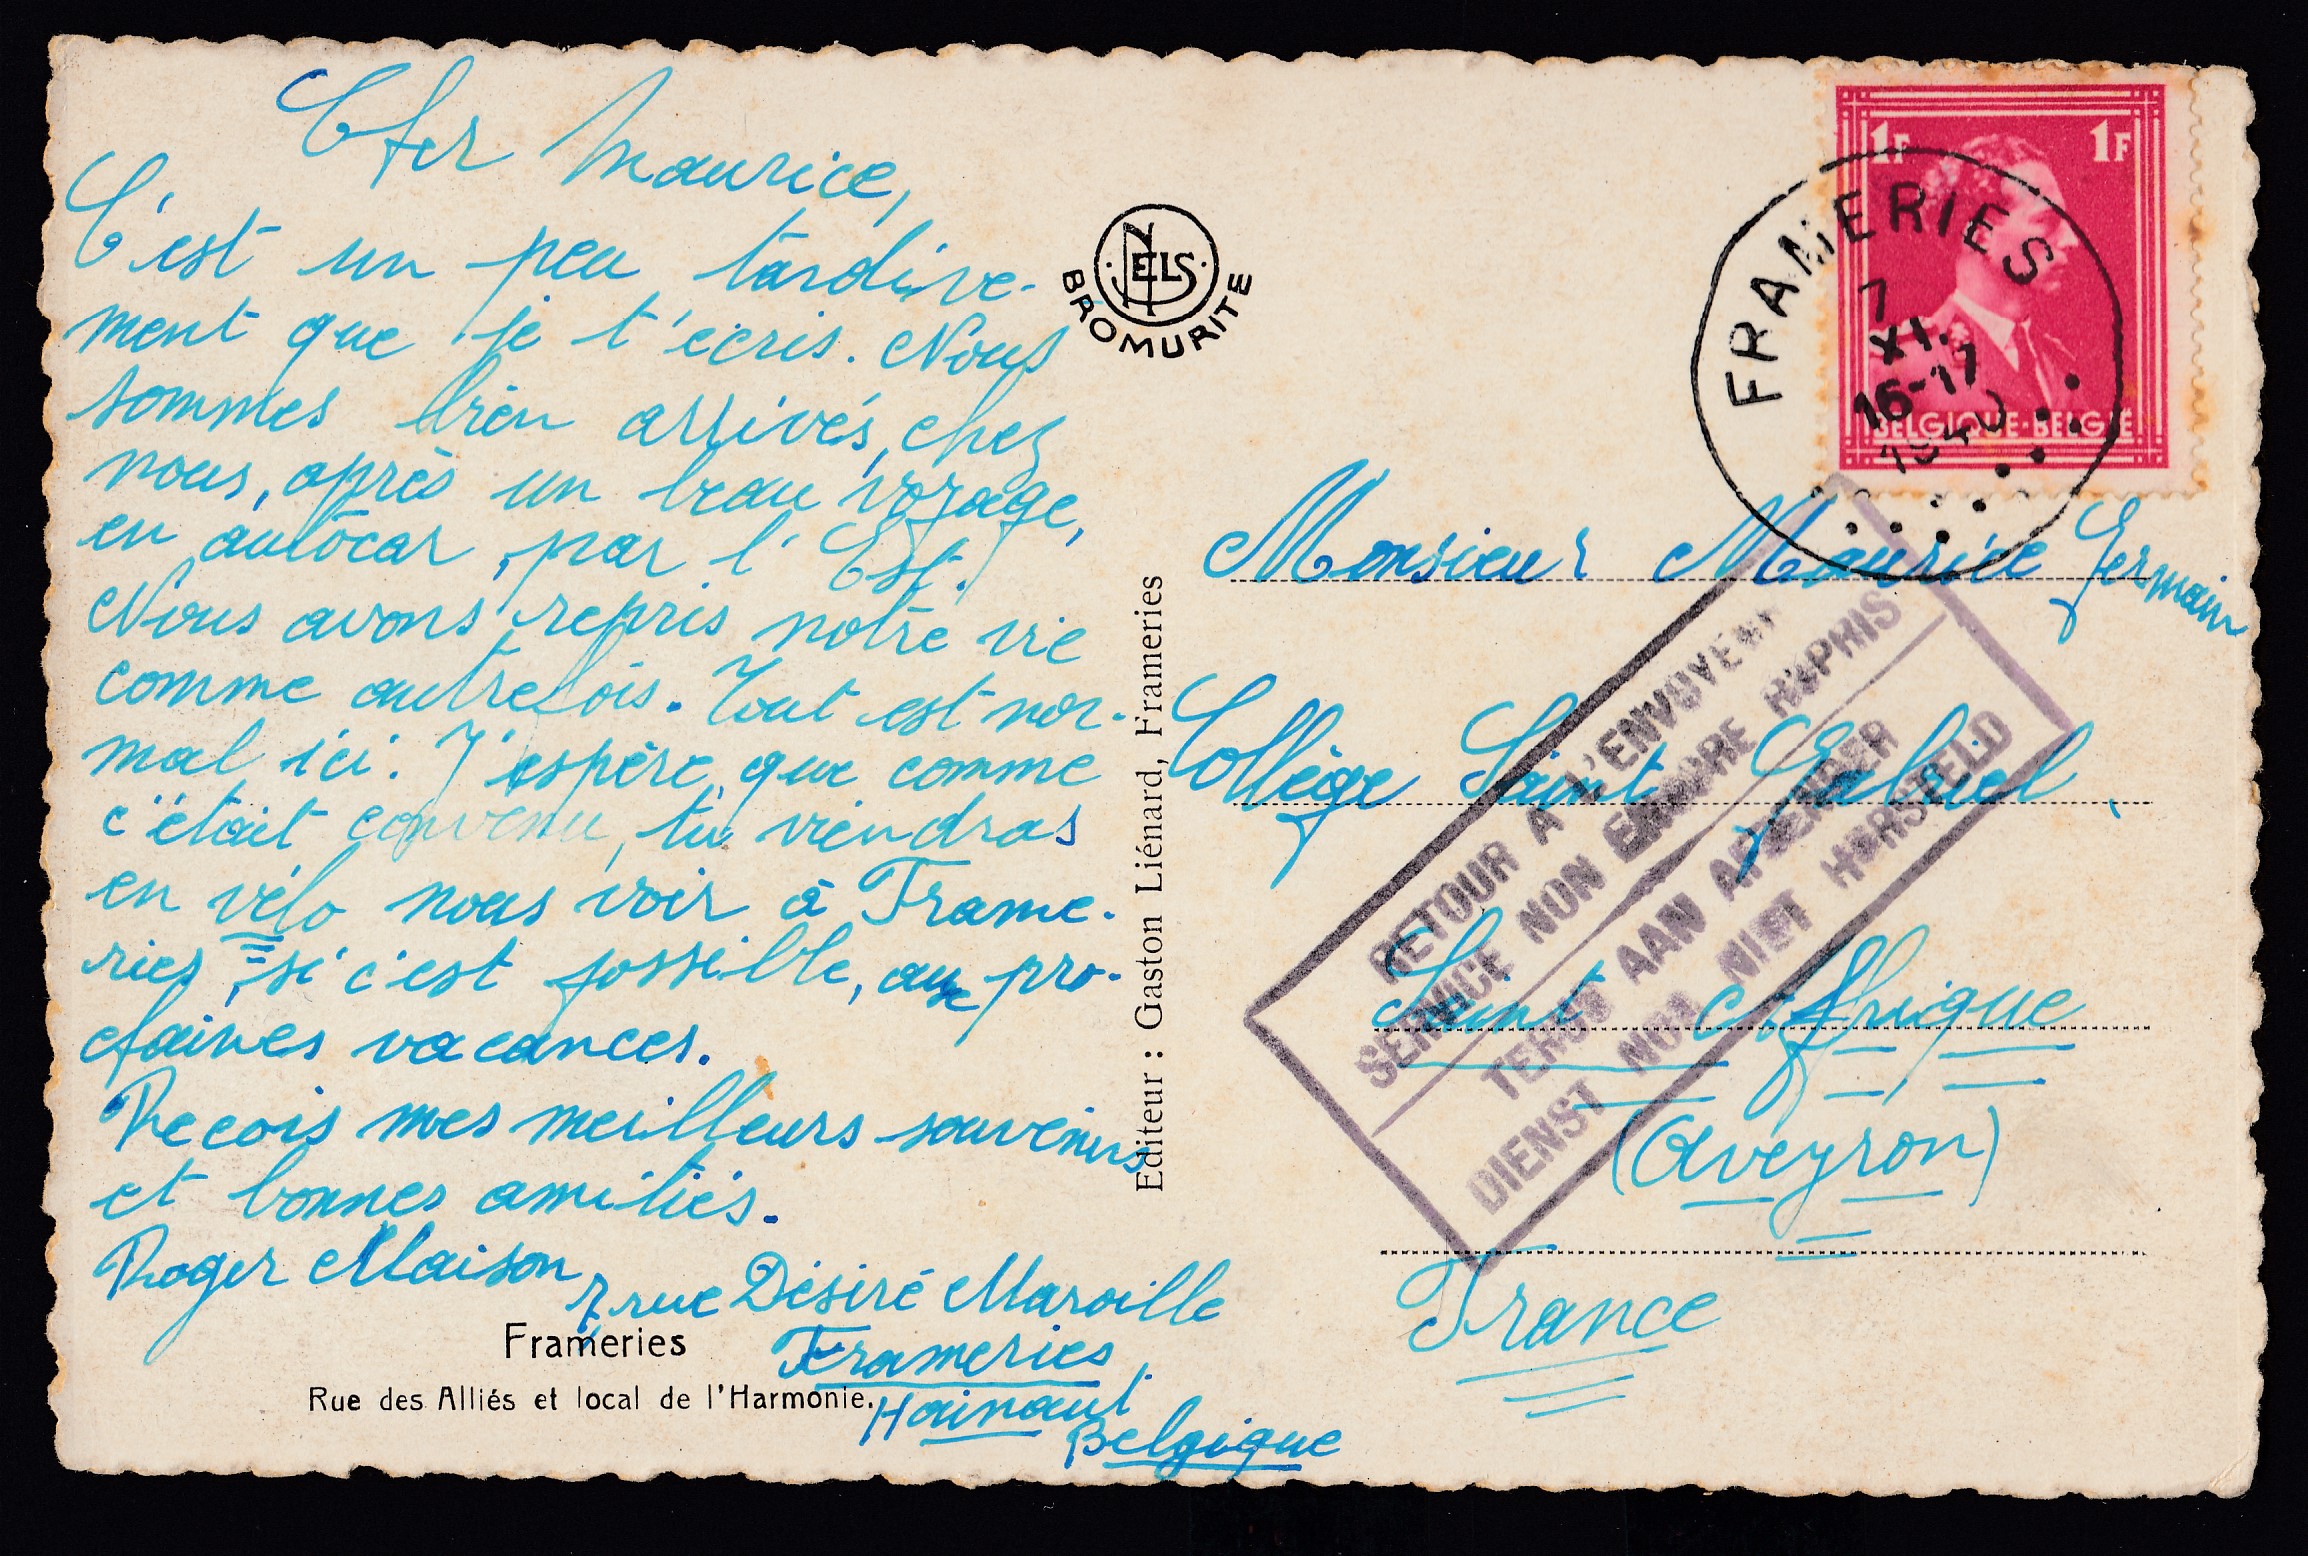 Cher Maurice,
C'est un peu tardive-
ment que je t'écris. Nous
sommes bien arrivés, chez
nous, après un beau voyage,
en autocar, par l'Est.
Nous avons repris notre vie
comme autrefois. Tout est nor-
mal ici. J'espère, que comme
c'était convenu, tu viendras
en vélo nous voir à Frame-
ries, si c'est possible, aux pro-
chaines vacances.
Recois mes meilleurs souvenirs
et bonnes amitiés.
Roger Maison
7, rue Désiré Maroille
Frameries,
Hainaut
Belgique
Frameries
Rue des Alliés et local de l'Harmonie.
NELS
BROMURITE
Editeur : Gaston Liénard, Frameries
1F 1F
BELGIQUE-BELGIË
FRAMERIES
7
XI.
16-17
1940
Monsieur Maurice Germain
Collège Saint Gabriel,
Saint Affrique
(Aveyron)
France
RETOUR A L'ENVOYEUR
SERVICE NON ENCORE REPRIS
TERUG AAN AFZENDER
DIENST NOG NIET HERSTELD